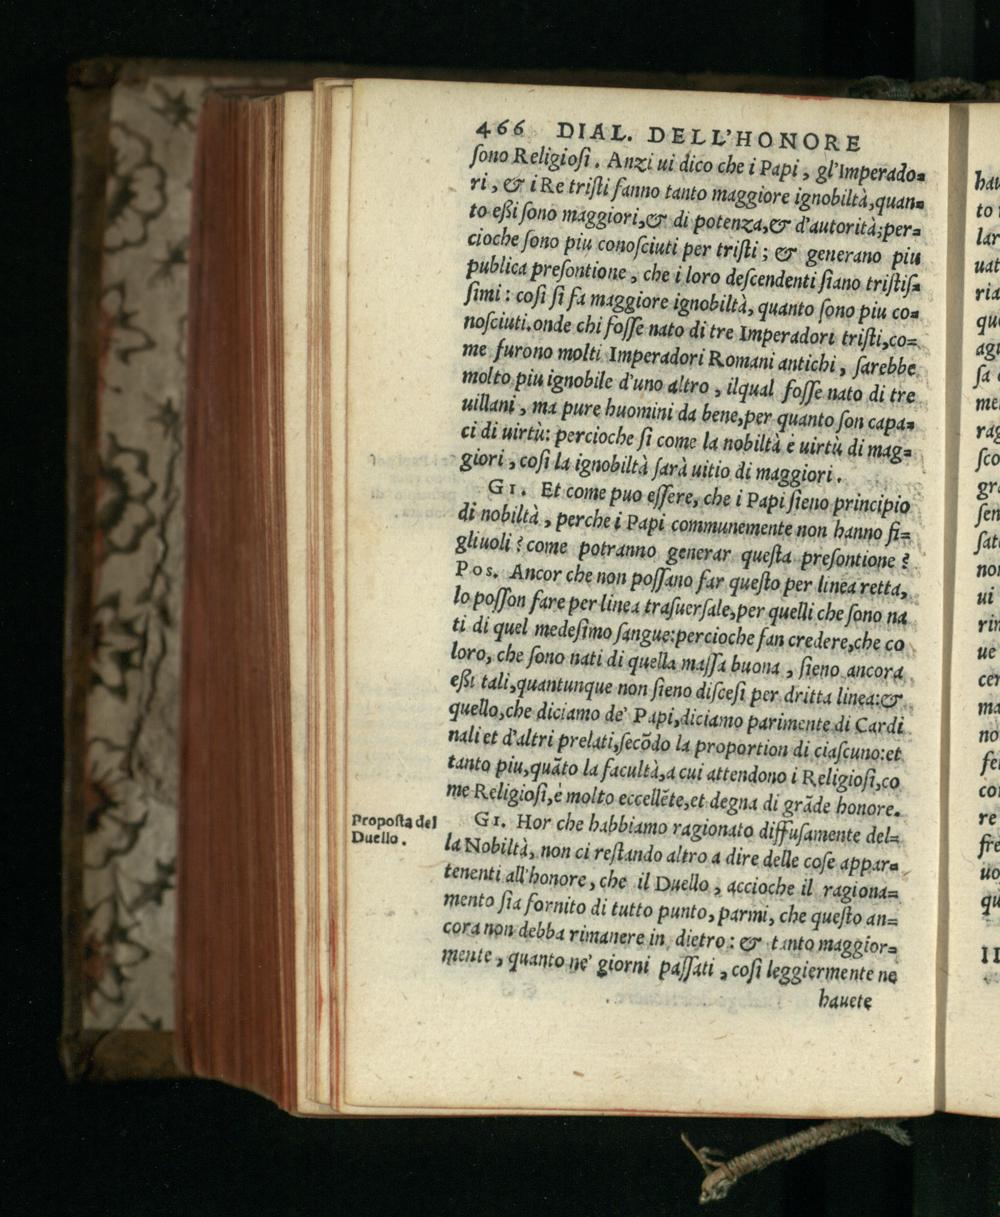 466 DIAL. DELL'HONORE
ſono Religioſi. Anzi ui dico che i Papi, gl'Imperado=
ri, & i Re triſti fanno tanto maggiore ignobiltà, quan=
to eßi ſono maggiori, & di potenza, & d'autorità; per=
cioche ſono piu conoſciuti per triſti; & generano piu
publica preſontione, che i loro deſcendenti ſiano triſtiſ=
ſimi: coſi ſi fa maggiore ignobiltà, quanto ſono piu co=
noſciuti. onde chi foſſe nato di tre Imperadori triſti, co=
me furono molti Imperadori Romani antichi, ſarebbe
molto piu ignobile d'uno altro, ilqual foſſe nato di tre
uillani, ma pure huomini da bene, per quanto ſon capa=
ci di uirtù: percioche ſi come la nobiltà è uirtù di mag=
giori, coſi la ignobiltà ſarà uitio di maggiori.
GI. Et come puo eſſere, che i Papi ſieno principio
di nobiltà, perche i Papi communemente non hanno fi=
gliuoli? come potranno generar queſta preſontione?
POS. Ancor che non poſſano far queſto per linea retta,
lo poſſon fare per linea traſuerſale, per quelli che ſono na
ti di quel medeſimo ſangue: percioche fan credere, che co
loro, che ſono nati di quella maſſa buona, ſieno ancora
eßi tali, quantunque non ſieno diſceſi per dritta linea: &
quello, che diciamo de' Papi, diciamo parimente di Cardi
nali et d'altri prelati, ſecõdo la proportion di ciaſcuno: et
tanto piu, quãto la facultà, a cui attendono i Religioſi, co
me Religioſi, è molto eccellẽte, et degna di grãde honore.
Propoſta del
Duello.
GI. Hor che habbiamo ragionato diffuſamente del=
la Nobiltà, non ci reſtando altro a dire delle coſe appar=
tenenti all'honore, che il Duello, accioche il ragiona=
mento ſia fornito di tutto punto, parmi, che queſto an=
cora non debba rimanere in dietro: & tanto maggior=
mente, quanto ne' giorni paſſati, coſi leggiermente ne
hauete
hau
to
lar
uat
ria
que
agi
ſa
me
rag
ſco
gra
ſen
ſat
non
ui
rin
ue
cer
ma
no
fe
co
re
fre
uo
qu
II